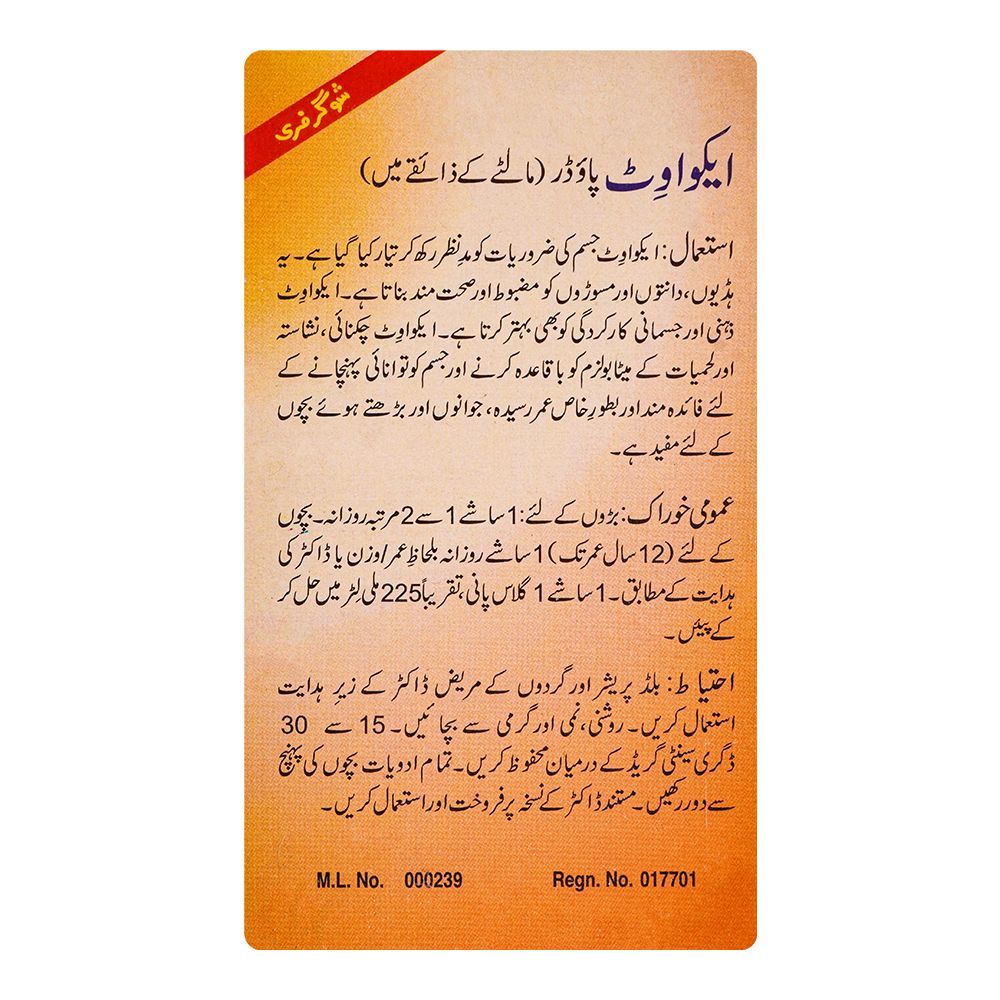 شوگر فری
ایکواوِٹ پاؤڈر (مالٹے کے ذائقے میں)
استعمال: ایکواوِٹ جسم کی ضروریات کو مدِنظر رکھ کر تیار کیا گیا ہے۔ یہ
ہڈیوں، دانتوں اور مسوڑوں کو مضبوط اور صحت مند بناتا ہے۔ ایکواوِٹ
ذہنی اور جسمانی کارکردگی کو بھی بہتر کرتا ہے۔ ایکواوِٹ چکنائی، نشاستہ
اور لحمیات کے میٹابولزم کو باقاعدہ کرنے اور جسم کو توانائی پہنچانے کے
لئے فائدہ مند اور بطورِ خاص عمر رسیدہ، جوانوں اور بڑھتے ہوئے بچوں
کے لئے مفید ہے۔
عمومی خوراک: بڑوں کے لئے: 1 ساشے 1 سے 2 مرتبہ روزانہ۔ بچوں
کے لئے (12 سال عمر تک) 1 ساشے روزانہ بلحاظِ عمر/وزن یا ڈاکٹر کی
ہدایت کے مطابق۔ 1 ساشے 1 گلاس پانی، تقریباً 225 ملی لِٹر میں حل کر
کے پیئں۔
احتیاط: بلڈ پریشر اور گردوں کے مریض ڈاکٹر کے زیرِ ہدایت
استعمال کریں۔ روشنی، نمی اور گرمی سے بچائیں۔ 15 سے 30
ڈگری سینٹی گریڈ کے درمیان محفوظ کریں۔ تمام ادویات بچوں کی پہنچ
سے دور رکھیں۔ مستند ڈاکٹر کے نسخہ پر فروخت اور استعمال کریں۔
M.L. No. 000239 Regn. No. 017701